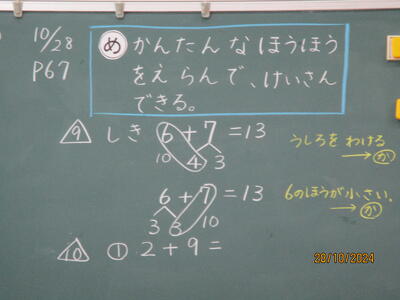 10/28
P67
め かんたんなほうほう
をえらんで、けいさん
できる。
9 しき 6+7=13
10 4 3
うしろをわける
→か
6+7=13
3 3 10
6のほうが小さい。
→か
10 ① 2+9=
29/10/2024